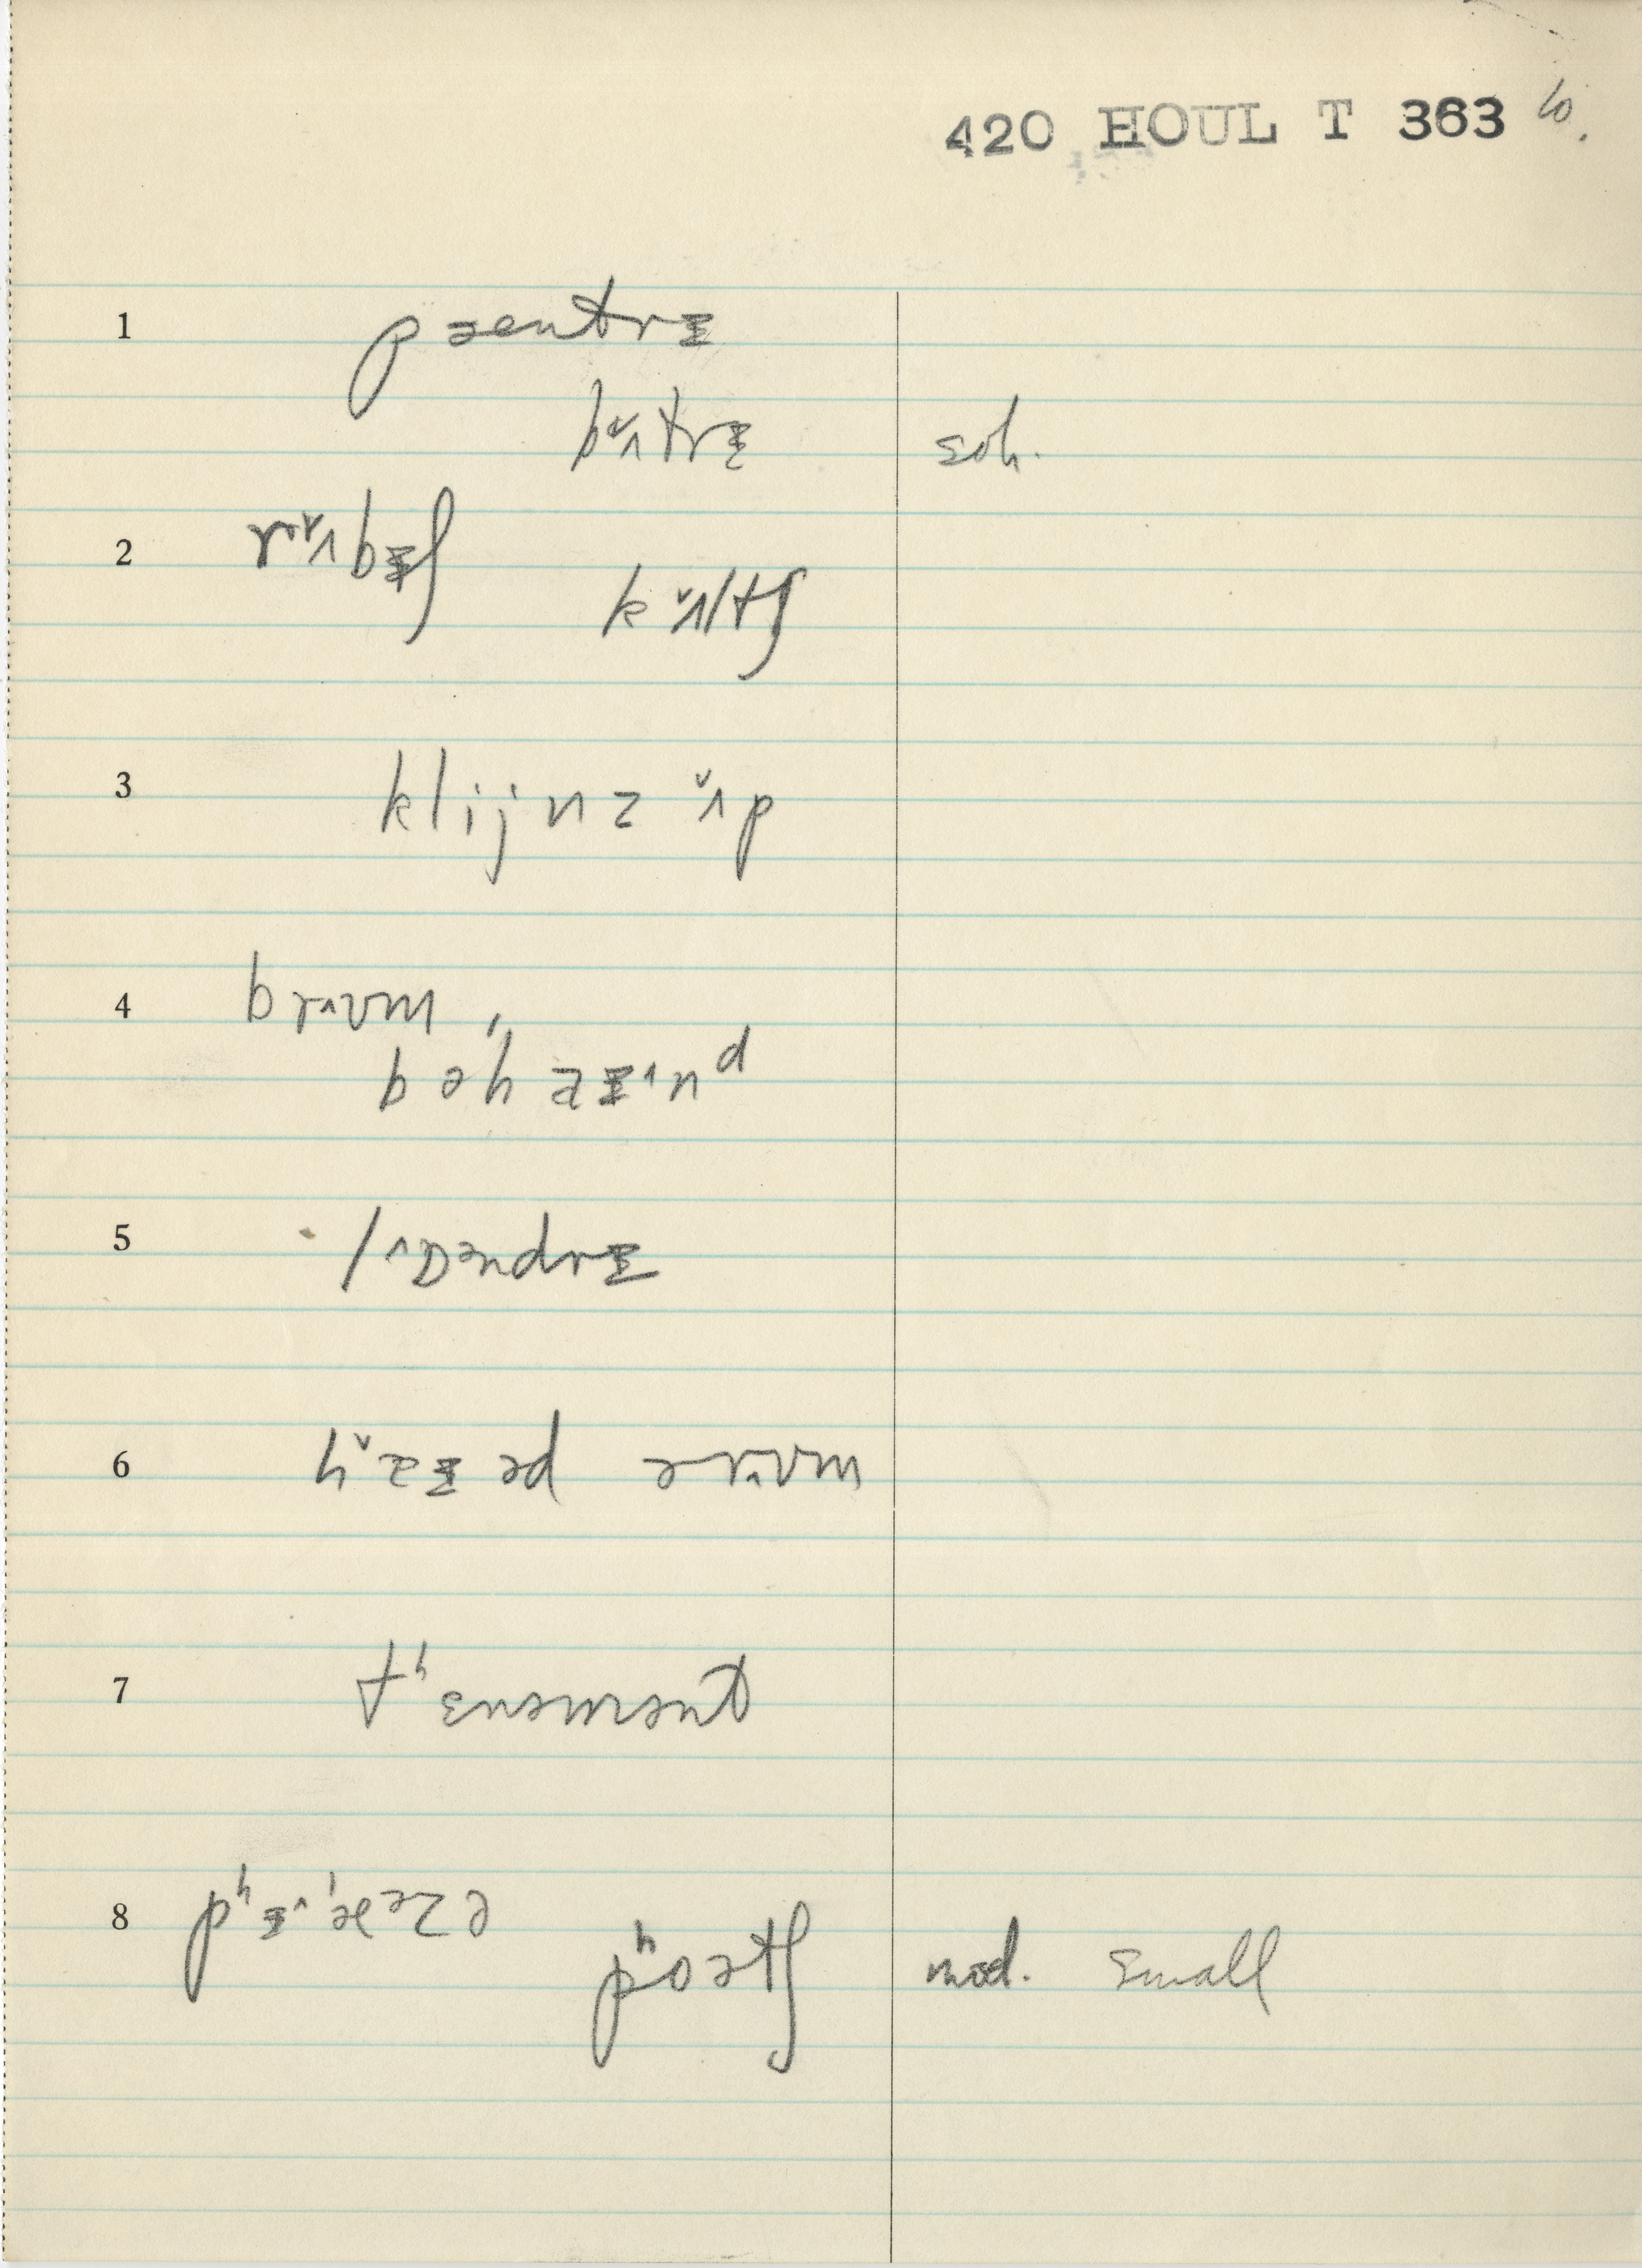 420 HOUL T 363 6.
1 pæntrɪ
bʌ̌trɪ soh.
2 rʌ̌bɪʃ kʌ̌ltʃ
3 klijnz ʌ̌p
4 brʌʊm,
bəhaɪ^nᵈ
5 lɒəndrɪ
6 hæ̌ɪəd ərʌʊm
7 tʰɛnəmənt
8 pʰɪ^æəzə
pʰoətʃ mod. small